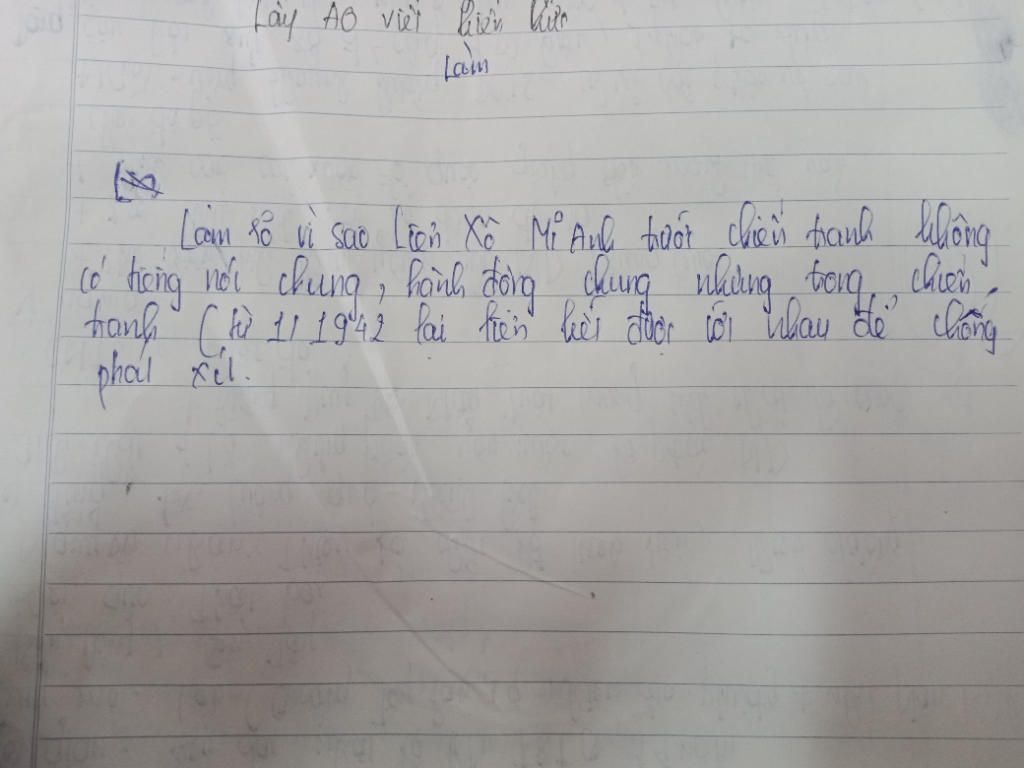 Lấy A0 viết kiến thức
Làm
Làm rõ vì sao Liên Xô Mĩ Anh trước chiến tranh không
có tiếng nói chung, hành động chung nhưng trong chiến
tranh (từ 1/1942 lại liên kết được với nhau để chống
phát xít.